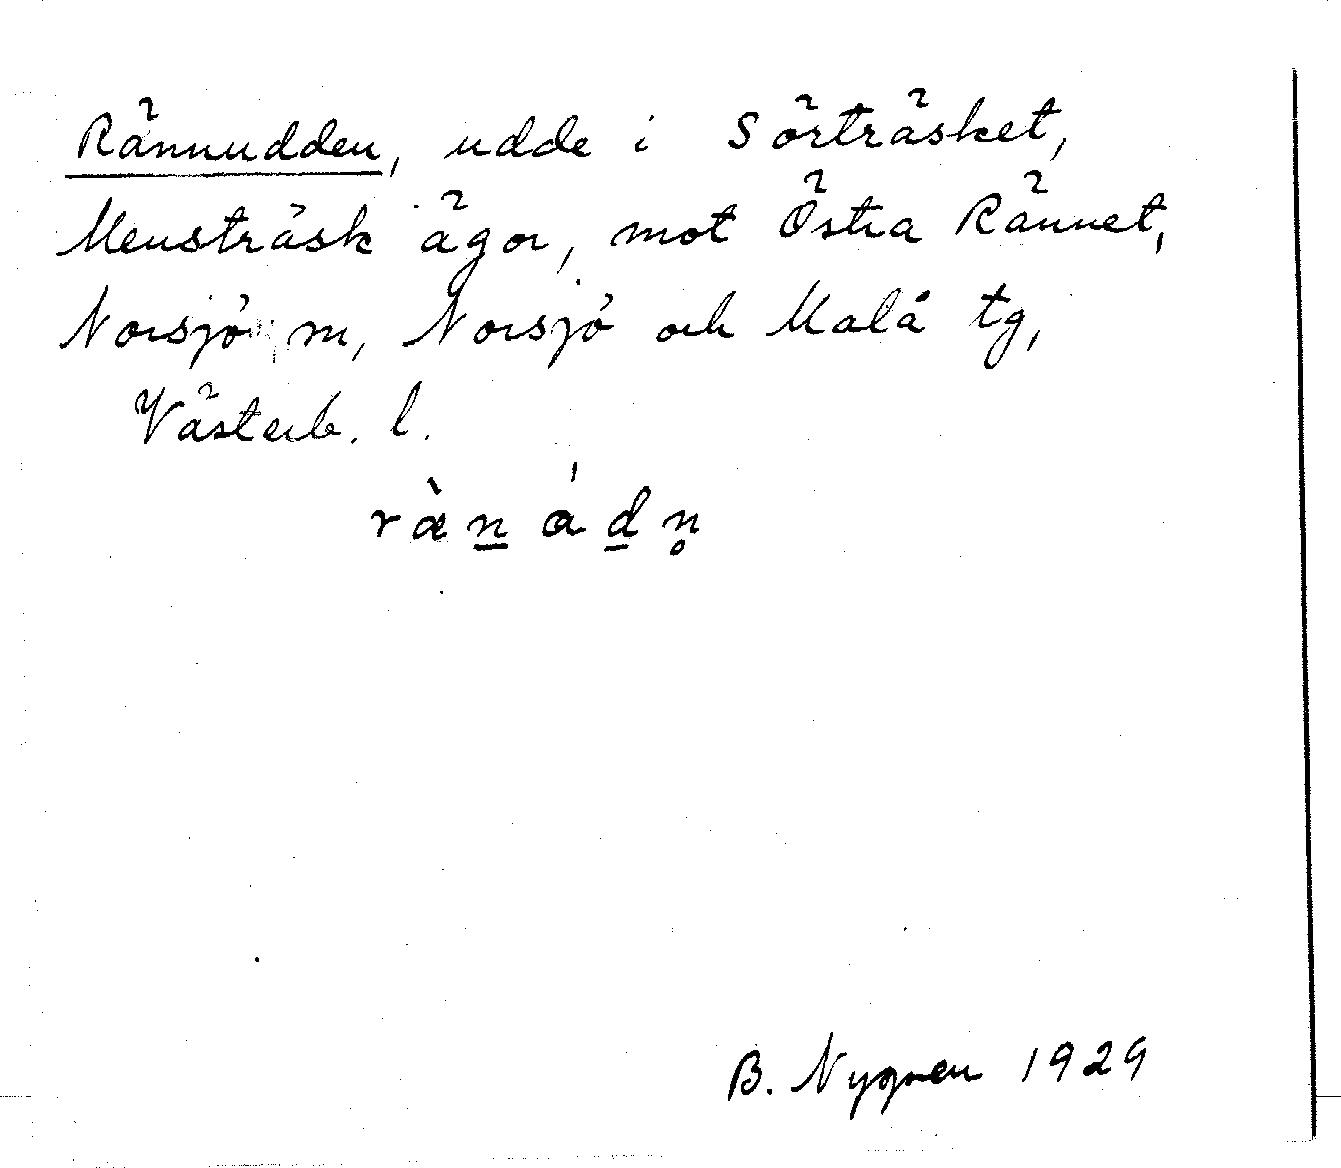 Rännudden, udde i Sörträsket,
Mensträsk ägor, mot Östra Rännet,
Norsjö m, Norsjö och Malå tg,
Västerb. l.
ræ̀n̲ ád̲n̥
B. Nygren 1929